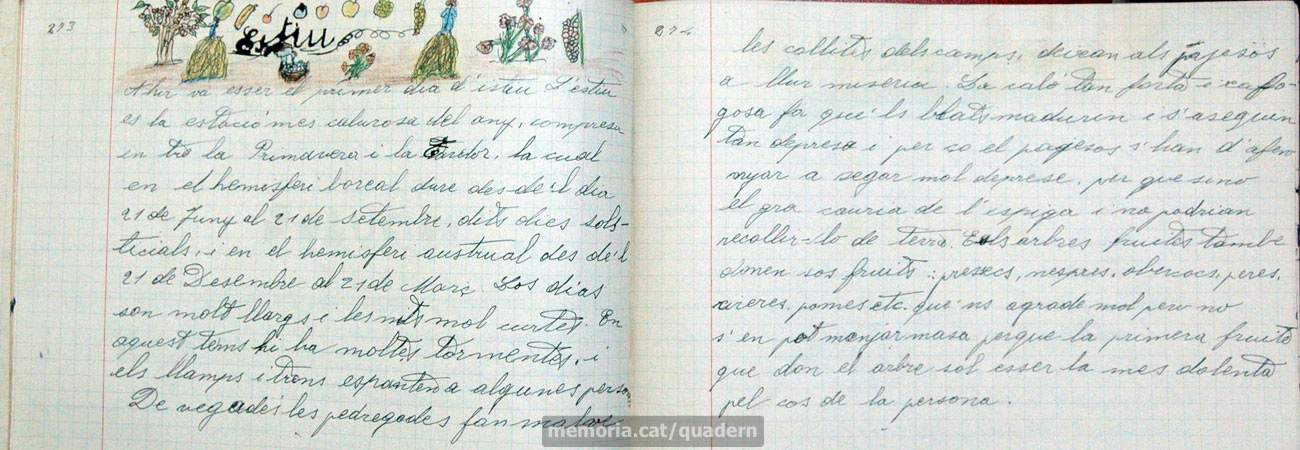 273
Estiu
Ahir va esser el primer dia d'estiu L'estiu
es la estació mes calurosa del any, compresa
en tre la Primavera i la Tardor, la cual
en el hemisferi boreal dure des-de'l dia
21 de Juny al 21 de setembre, dits dies sols-
ticials, i en el hemisferi austrual des de'l
21 de Desembre al 21 de Març. Los dias
son molt llargs i les nits mol curtes. En
aquest tems hi ha moltes tormentes, i
els llamps i trons espanten a algunes perso
De vegades les pedregades fan malve
274
les collites dels camps, deixan als pagesos
a llur miseria. La calo tan forta i xafo-
gosa fa que'ls blats madurin i s'aseguin
tan depresa i per so el pagesos s'han d'afen
nyar a segar mol deprese, per que sino
el gra cauria de l'espiga i no podrian
recollir-lo de terra. Els arbres fruites tambe
donen sos fruits: presecs, nespres, obercocs, peres,
cireres, pomes etc. que'ns agrade mol pero no
s'en pot menjar masa perque la primera fruita
que don el arbre sol esser la mes dolenta
pel cos de la persona.
memoria.cat/quadern